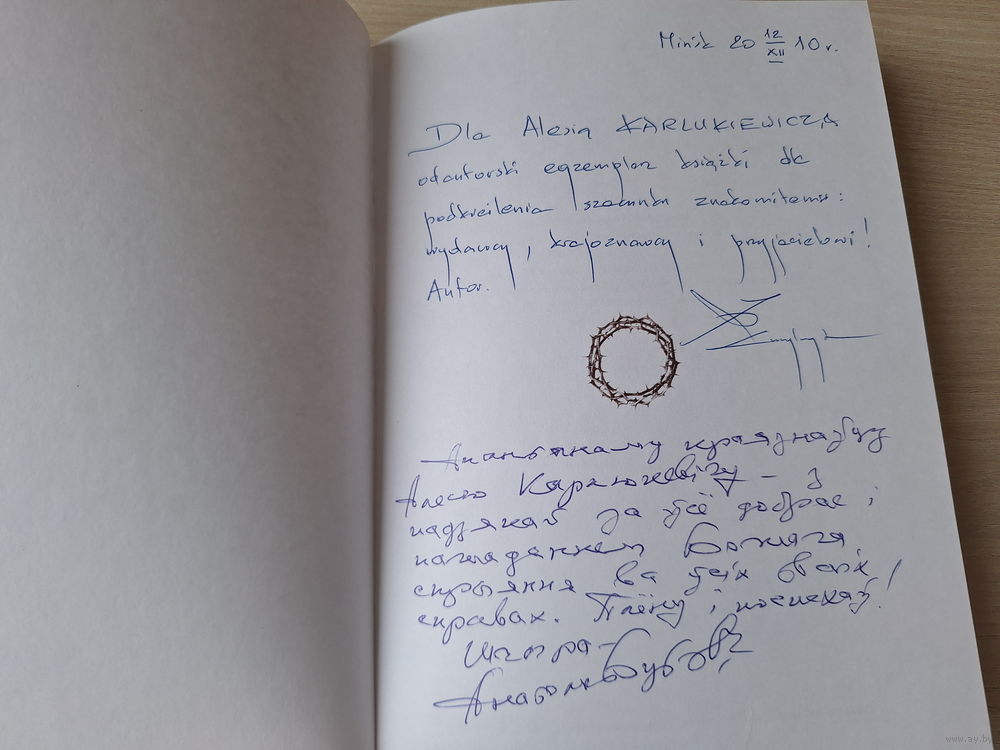 Mińsk 20 12/XII 10 r.
Dla Alesia KARLUKIEWICZA
odautorski egzemplarz książki dla
podkreślenia szacunku znakomitemu:
wydawcy, krajoznawcy i przyjacielowi!
Autor.
краязнаўцу
Алесю Карлюкевічу – з
падзякай за ўсё добрае і
пажаданнем Божага
спрыяння ва ўсіх сваіх
справах. Плёну і поспехаў!
Шчыра –
Анатоль Бутэвіч
www.ay.by